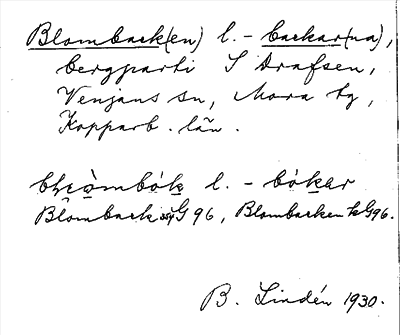 Blomback(en) l. - backar(na),
bergparti S Drafsen,
Venjans sn, Mora tg,
Kopparb. län.
l. - bókar
Blomback G 96, Blombacken k G96.
B. Lindén 1930.